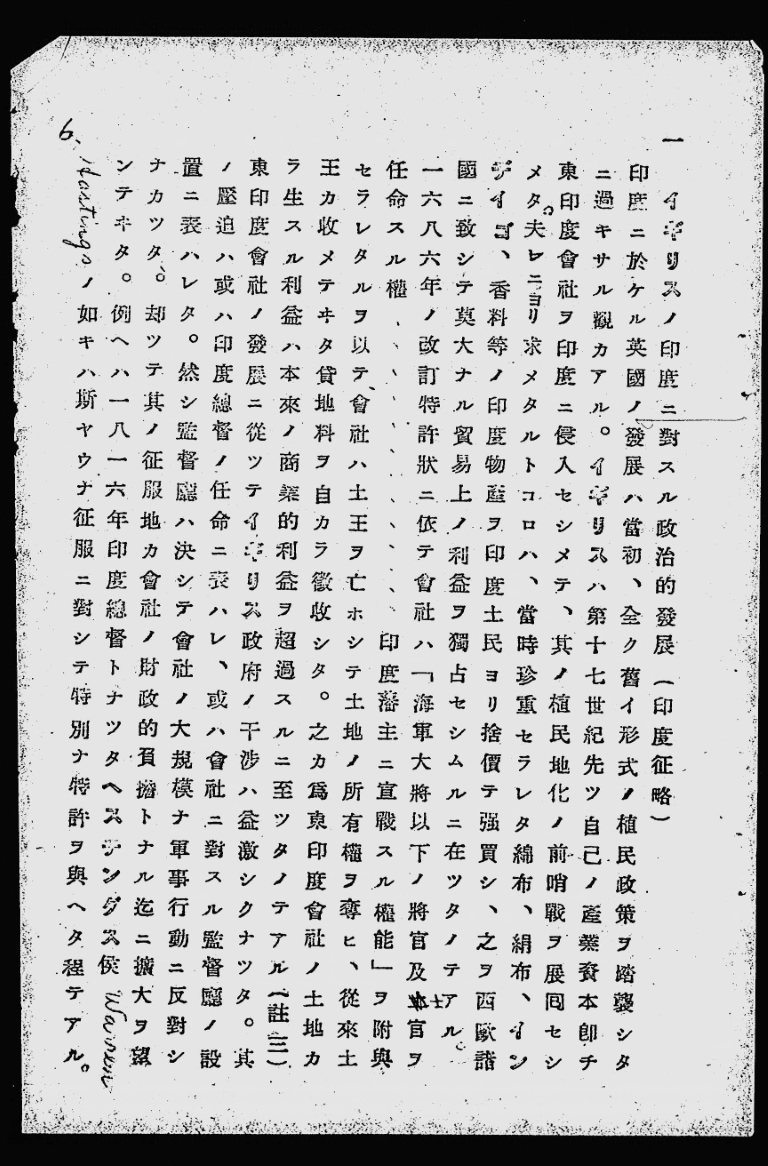 一　イギリスノ印度ニ對スル政治的發展（印度征略）
印度ニ於ケル英國ノ發展ハ當初、全ク舊イ形式ノ植民政策ヲ踏襲シタ
ニ過キサル觀カアル。イギリスハ第十七世紀先ツ自己ノ產業資本卽チ
東印度會社ヲ印度ニ侵入セシメテ、其ノ植民地化ノ前哨戰ヲ展囘セシ
メタ。夫レニヨリ求メタルトコロハ、當時珍重セラレタ綿布、絹布、イン
デイゴ、香料等ノ印度物產ヲ印度土民ヨリ捨價テ强買シ、之ヲ西歐諸
國ニ致シテ莫大ナル貿易上ノ利益ヲ獨占セシムルニ在ツタノテアル。
一六八六年ノ改訂特許狀ニ依テ會社ハ「海軍大將以下ノ將官及士官ヲ
任命スル權、、、、、、、、、印度藩主ニ宣戰スル權能」ヲ附與
セラレタルヲ以テ、會社ハ土王ヲ亡ホシテ土地ノ所有權ヲ奪ヒ、從來土
王カ收メテヰタ貸地料ヲ自カラ徵收シタ。之カ爲東印度會社ノ土地カ
ラ生スル利益ハ本來ノ商業的利益ヲ超過スルニ至ツタノテアル（註三）
東印度會社ノ發展ニ從ツテイギリス政府ノ干涉ハ益激シクナツタ。其
ノ壓迫ハ或ハ印度總督ノ任命ニ表ハレ、或ハ會社ニ對スル監督廳ノ設
置ニ表ハレタ。然シ監督廳ハ決シテ會社ノ大規模ナ軍事行動ニ反對シ
ナカツタ。却ツテ其ノ征服地カ會社ノ財政的負擔トナル迄ニ擴大ヲ望
ンテヰタ。例ヘハ一八一六年印度總督トナツタヘスチングス侯 Warren
6. Hastingsノ如キハ斯ヤウナ征服ニ對シテ特別ナ特許ヲ與ヘタ程テアル。